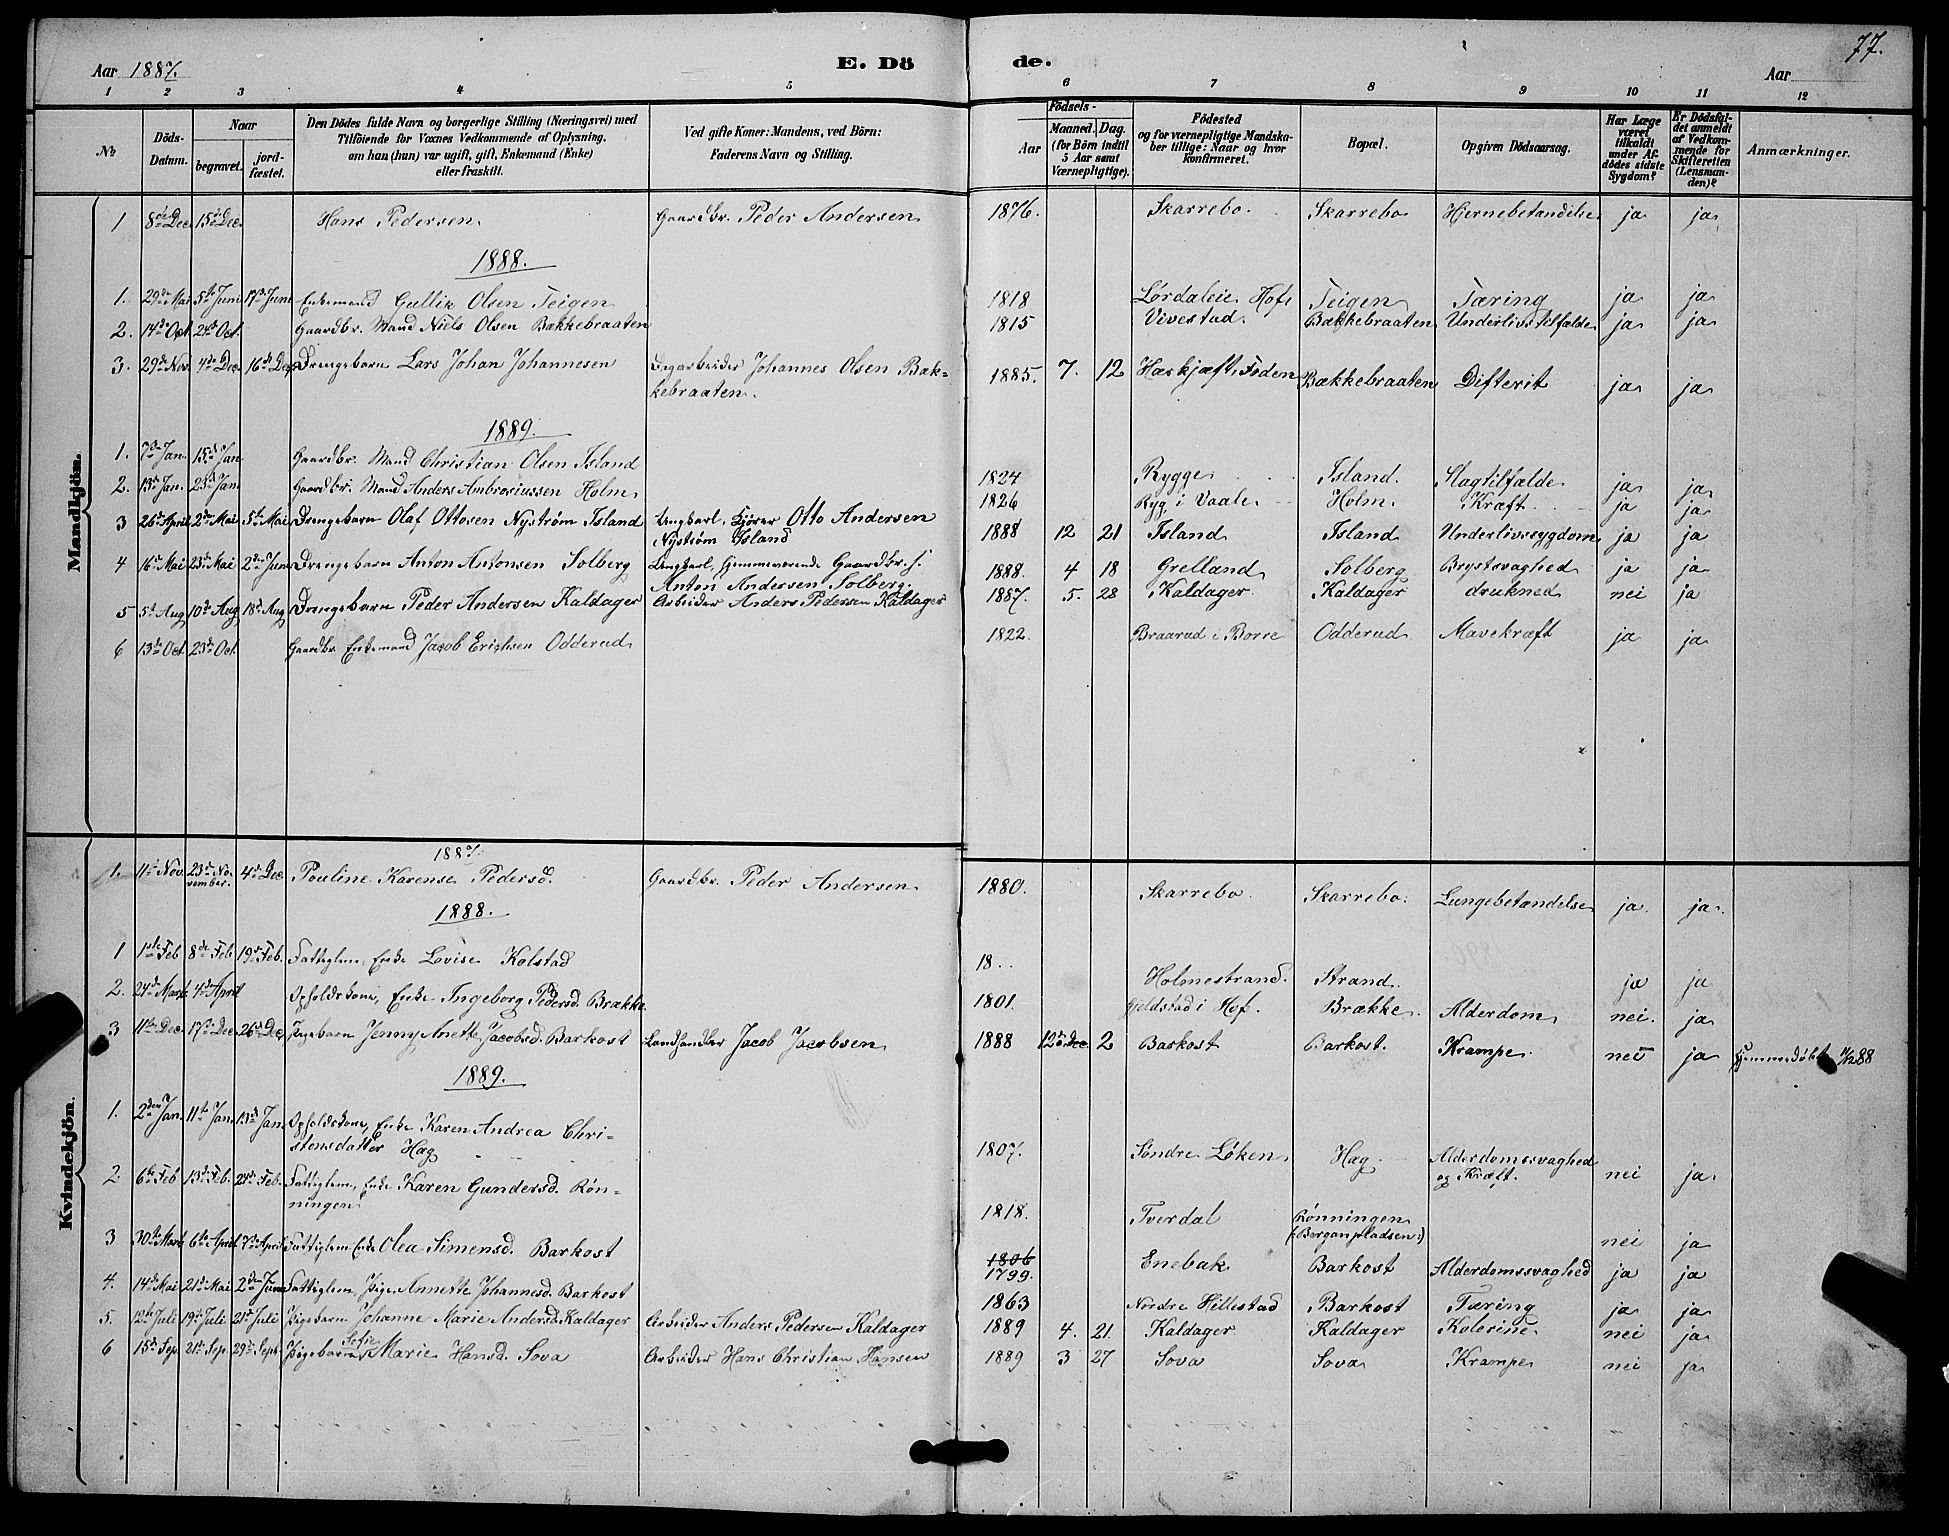 Aar 1887.
E. Dö
de.
77.
Aar
1 2 3 4 5 6 7 8 9 10 11 12
№
Döds-Datum.
Naar
begravet.
jord-fæstet.
Den Dödes fulde Navn og borgerlige Stilling (Næringsvei) med
Tilföiende for Voxnes Vedkommende af Oplysning,
om han (hun) var ugift, gift, Enkemand (Enke)
eller fraskilt.
Ved gifte Koner: Mandens, ved Börn:
Faderens Navn og Stilling.
Födsels-
Aar
Maaned. Dag.
(for Börn indtil
5 Aar samt
Værnepligtige).
Födested
og for værnepligtige Mandska-
ber tillige: Naar og hvor
konfirmeret.
Bopæl.
Opgiven Dödsaarsag.
Har Læge
været
tilkaldt
under Af-
dödes sidste
Sygdom?
Er Dödsfal-
det anmeldt
af Vedkom-
mende for
Skifteretten
(Lensman-
den)?
Anmærkninger.
Mandkjön.
1 8de Dec. 15de Dec. Hans Pedersen. Gaardbr. Peder Andersen 1876. Skarrebo. Skarrebo Hjernebetændelse ja ja
1888.
1. 29de Mai 5te Juni 17de Juni Enkemand Gullik Olsen Teigen 1818 Lørdaleie Hof Teigen Tæring ja ja
2. 14de Oct. 24de Oct. Gaardbr. Mand Niels Olsen Bækkebraaten 1815 Vivestad. Bækkebraaten Underlivstilfælde ja ja
3. 29de Nov. 4de Dec. 16de Dec. Drengebarn Lars Johan Johannesen Dagarbeider Johannes Olsen Bæk-
kebraaten. 1885. 7. 12 Bækkebraaten Difterit ja ja
1889.
1. 7de Jan. 15de Jan. Gaardbr. Mand Christian Olsen Island 1824 Rygge Island. Slagtilfælde ja ja
2. 13de Jan. 23de Jan. Gaardbr. Mand Anders Ambrosiussen Holm 1826 Ryg i Vaale Holm. Kræft. ja ja
3 26de April 2den Mai 5te Mai Drengebarn Olaf Ottosen Nystrøm Island Ungkarl, Kjører Otto Andersen
Nystrøm Island 1888 12 21 Island Island Underlivssygdom ja ja
4 16de Mai 23de Mai 2den Juni Drengebarn Anton Antonsen Solberg Ungkarl, hjemmeværende Gaardbr. s.
Anton Andersen Solberg. 1888. 4 18 Grelland Solberg Brystsvaghed ja ja
5 5te Aug. 10de Aug. 18de Aug. Drengebarn Peder Andersen Kaldager Arbeider Anders Pedersen Kaldager 1887. 5. 28 Kaldager Kaldager druknet nei ja
6 13de Oct. 23de Oct. Gaardbr. Enkemand Jacob Erichsen Odderud 1822. Braarud i Borre Odderud Mavekræft ja ja
Kvindekjön.
1887.
1. 11te Nov. 23de No-
vember. 4de Dec. Pauline Karense Pedersd. Gaardbr. Peder Andersen. 1880. Skarrebo. Skarrebo. Lungebetændelse ja. ja.
1888.
1 1ste Feb. 8de Feb. 19de Feb. Fattiglem, Enke Lovise Kolstad 18.. Holmestrand. Strand. ja ja
2. 24de Marts 4de April Opholdskone, Enke Ingeborg Pedersd. Brække 1801. Gjeldstad i Hof. Brække. Alderdom nei. ja
3 11te Dec. 17de Dec. 26de Dec. Pigebarn Jenny Anette Jacobsd. Barkost Landhandler Jacob Jacobsen 1888 12 Dec. 2 Barkost Barkost. Krampe. nei ja Hjemmedøbt 88
1889.
1. 2den Jan. 11te Jan. 13de Jan. Opholdskone, Enke Karen Andrea Chri-
stensdatter Hæg 1807. Søndre Løken Hæg Alderdomssvaghed
og Kræft. nei ja.
2 6te Feb. 13de Feb. 24de Feb. Fattiglem, Enke Karen Gundersd. Røn-
ningen 1818. Tverdal Rønningen
(:Berganpladsen:) nei ja
3 30te Marts 6te April 7de April Fattiglem Enke Olea Simensd. Barkost 1806
1799. Enebak Barkost Alderdomssvaghed ja ja
4. 14de Mai 21de Mai 2den Juni Fattiglem, Pige Annette Johannesd. Barkost 1863 Nordre Hillestad Barkost Tæring ja ja
5. 12te Juli 19de Juli 21de Juli Pigebarn Johanne Marie Andersd. Kaldager Arbeider Anders Pedersen Kaldager 1889 4. 21. Kaldager Kaldager Kolerine nei ja
6 15de Sep. 21de Sep. 29de Sept. Pigebarn Sofie Marie Hansd. Sova Arbeider Hans Christian Hansen 1889 3 27 Sova Sova Krampe nei ja